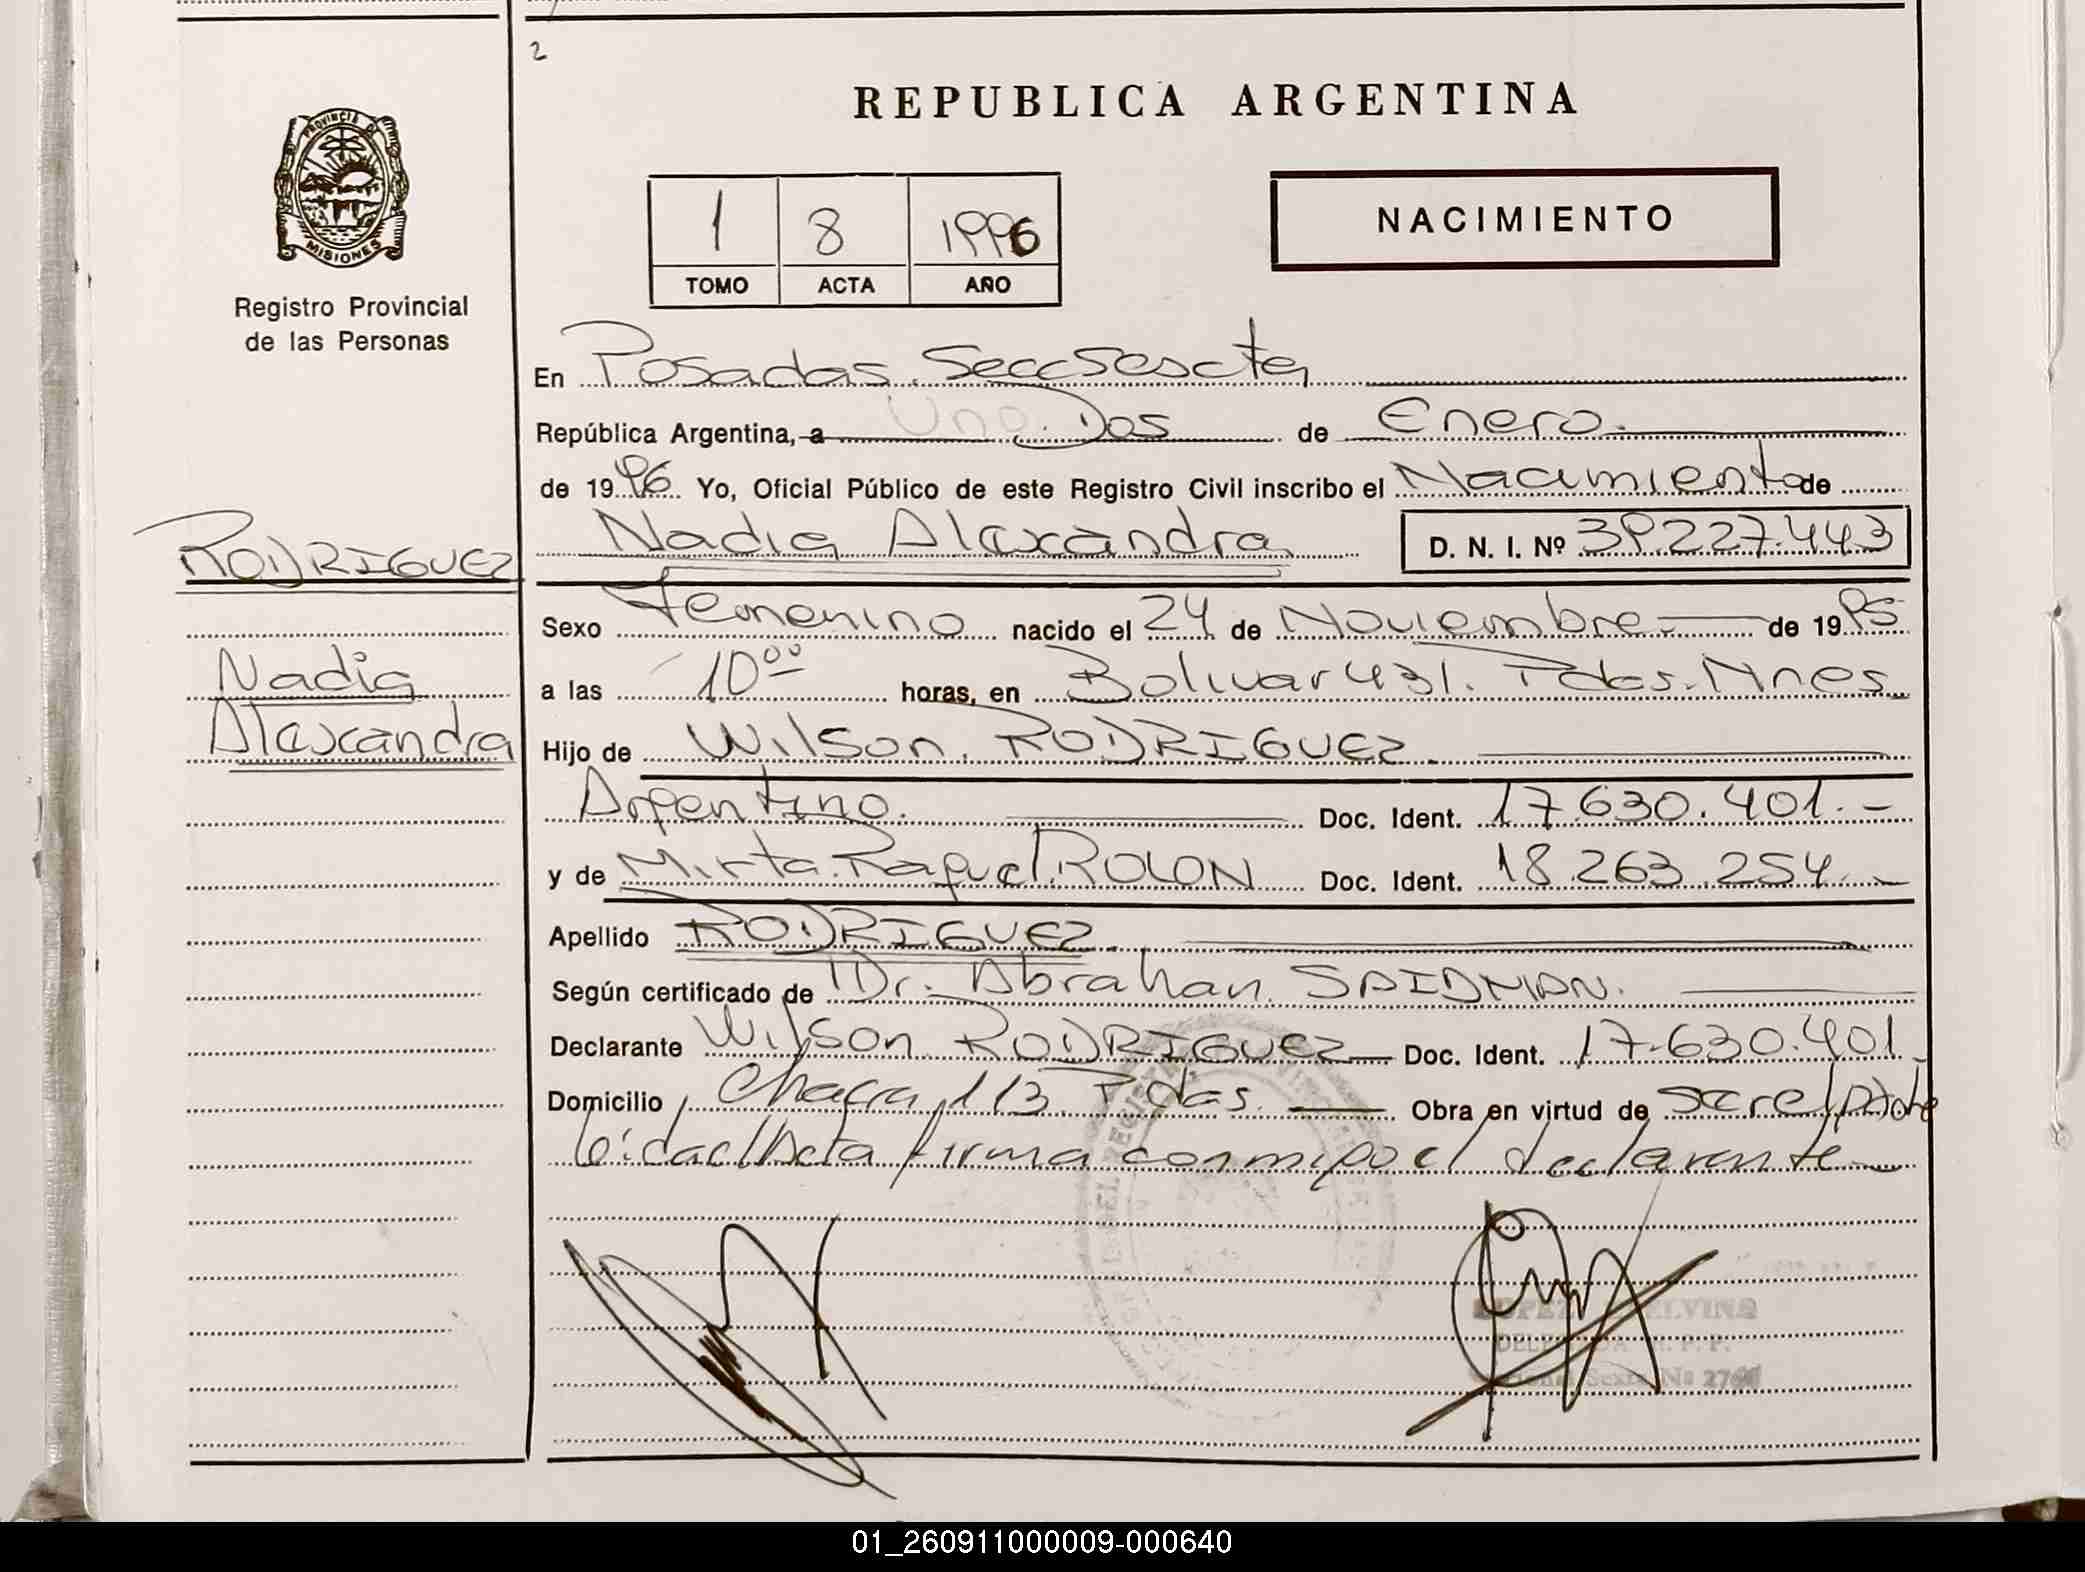 2
REPUBLICA ARGENTINA
PROVINCIA DE
MISIONES
Registro Provincial
de las Personas
1 8 1996
TOMO ACTA AÑO
NACIMIENTO
En Posadas. Secc Sescta
República Argentina, a Uno. Dos de Enero.
de 1996 Yo, Oficial Público de este Registro Civil inscribo el Nacimiento de
Nadia Alexandra D. N. I. Nº 39.227.443
RODRIGUEZ
Nadia
Alexandra
Sexo Femenino nacido el 24 de Noviembre de 1995
a las 10⁰⁰ horas, en Bolivar 431. Pdas. Mnes
Hijo de Wilson. RODRIGUEZ
Argentino. Doc. Ident. 17.630.401.-
y de Mirta. Raquel. ROLON Doc. Ident. 18.263.254.-
Apellido RODRIGUEZ.
Según certificado de Dr. Abrahan. SAIDMAN.
Declarante Wilson RODRIGUEZ Doc. Ident. 17.630.401.-
Domicilio Chacra 113 Pdas. Obra en virtud de
leida el Acta firma conmigo el declarante
DEL REGISTRO
LOPEZ ELVINA
DELEGADA R. P. P.
Sexta Nº
01_260911000009-000640